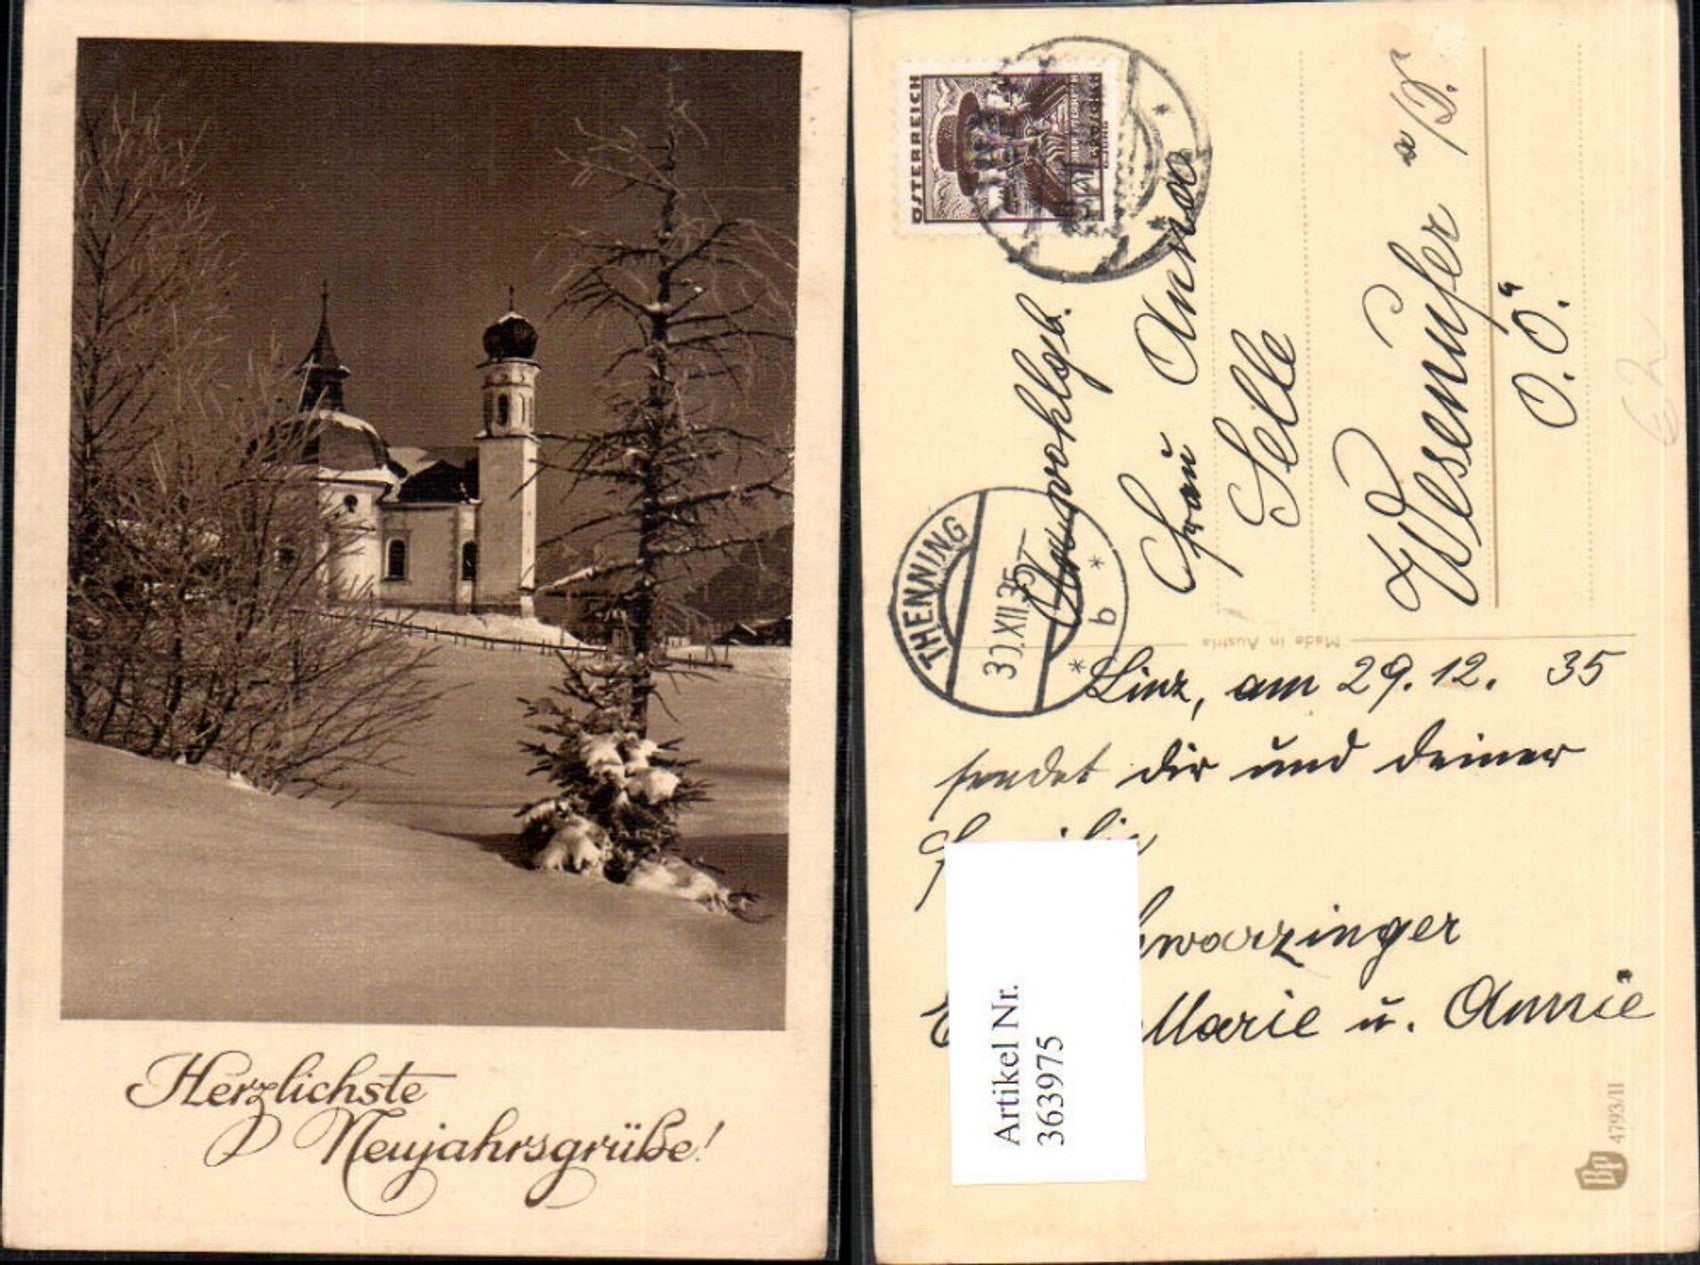 Herzlichste
Neujahrsgrüße!
ÖSTERREICH
THENNING
30.XII.35
* b *
Frau Anna
Selle
Wesenufer a/D.
O.Ö.
Made in Austria
Linz, am 29.12. 35
sendet dir und deiner
Marie u. Annie
Artikel Nr.
363975
BP 4793/II